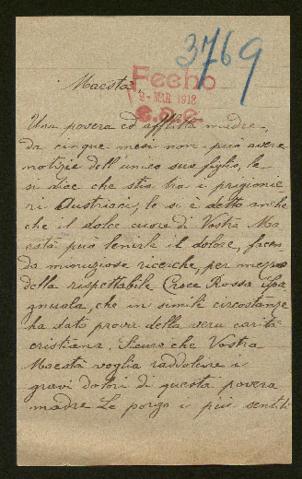 3769
Maestà,
Fecho
2 - MAR 1918
Una povera ed afflitta madre,
da cinque mesi non può avere
notizie dell'unico suo figlio, le
si dice che stia tra i prigionie
ri Austriaci, le si è detto anche
che il dolce cuore di Vostra Ma
està può lenirle il dolore, facen
do minuziose ricerche, per mezzo
della rispettabile Croce Rossa ispa
gnuola, che in simili circostanze
ha dato prove della vera carità
cristiana. Sicura che Vostra
Maestà voglia raddolcire i
gravi dolori di questa povera
madre Le porgo i più sentiti